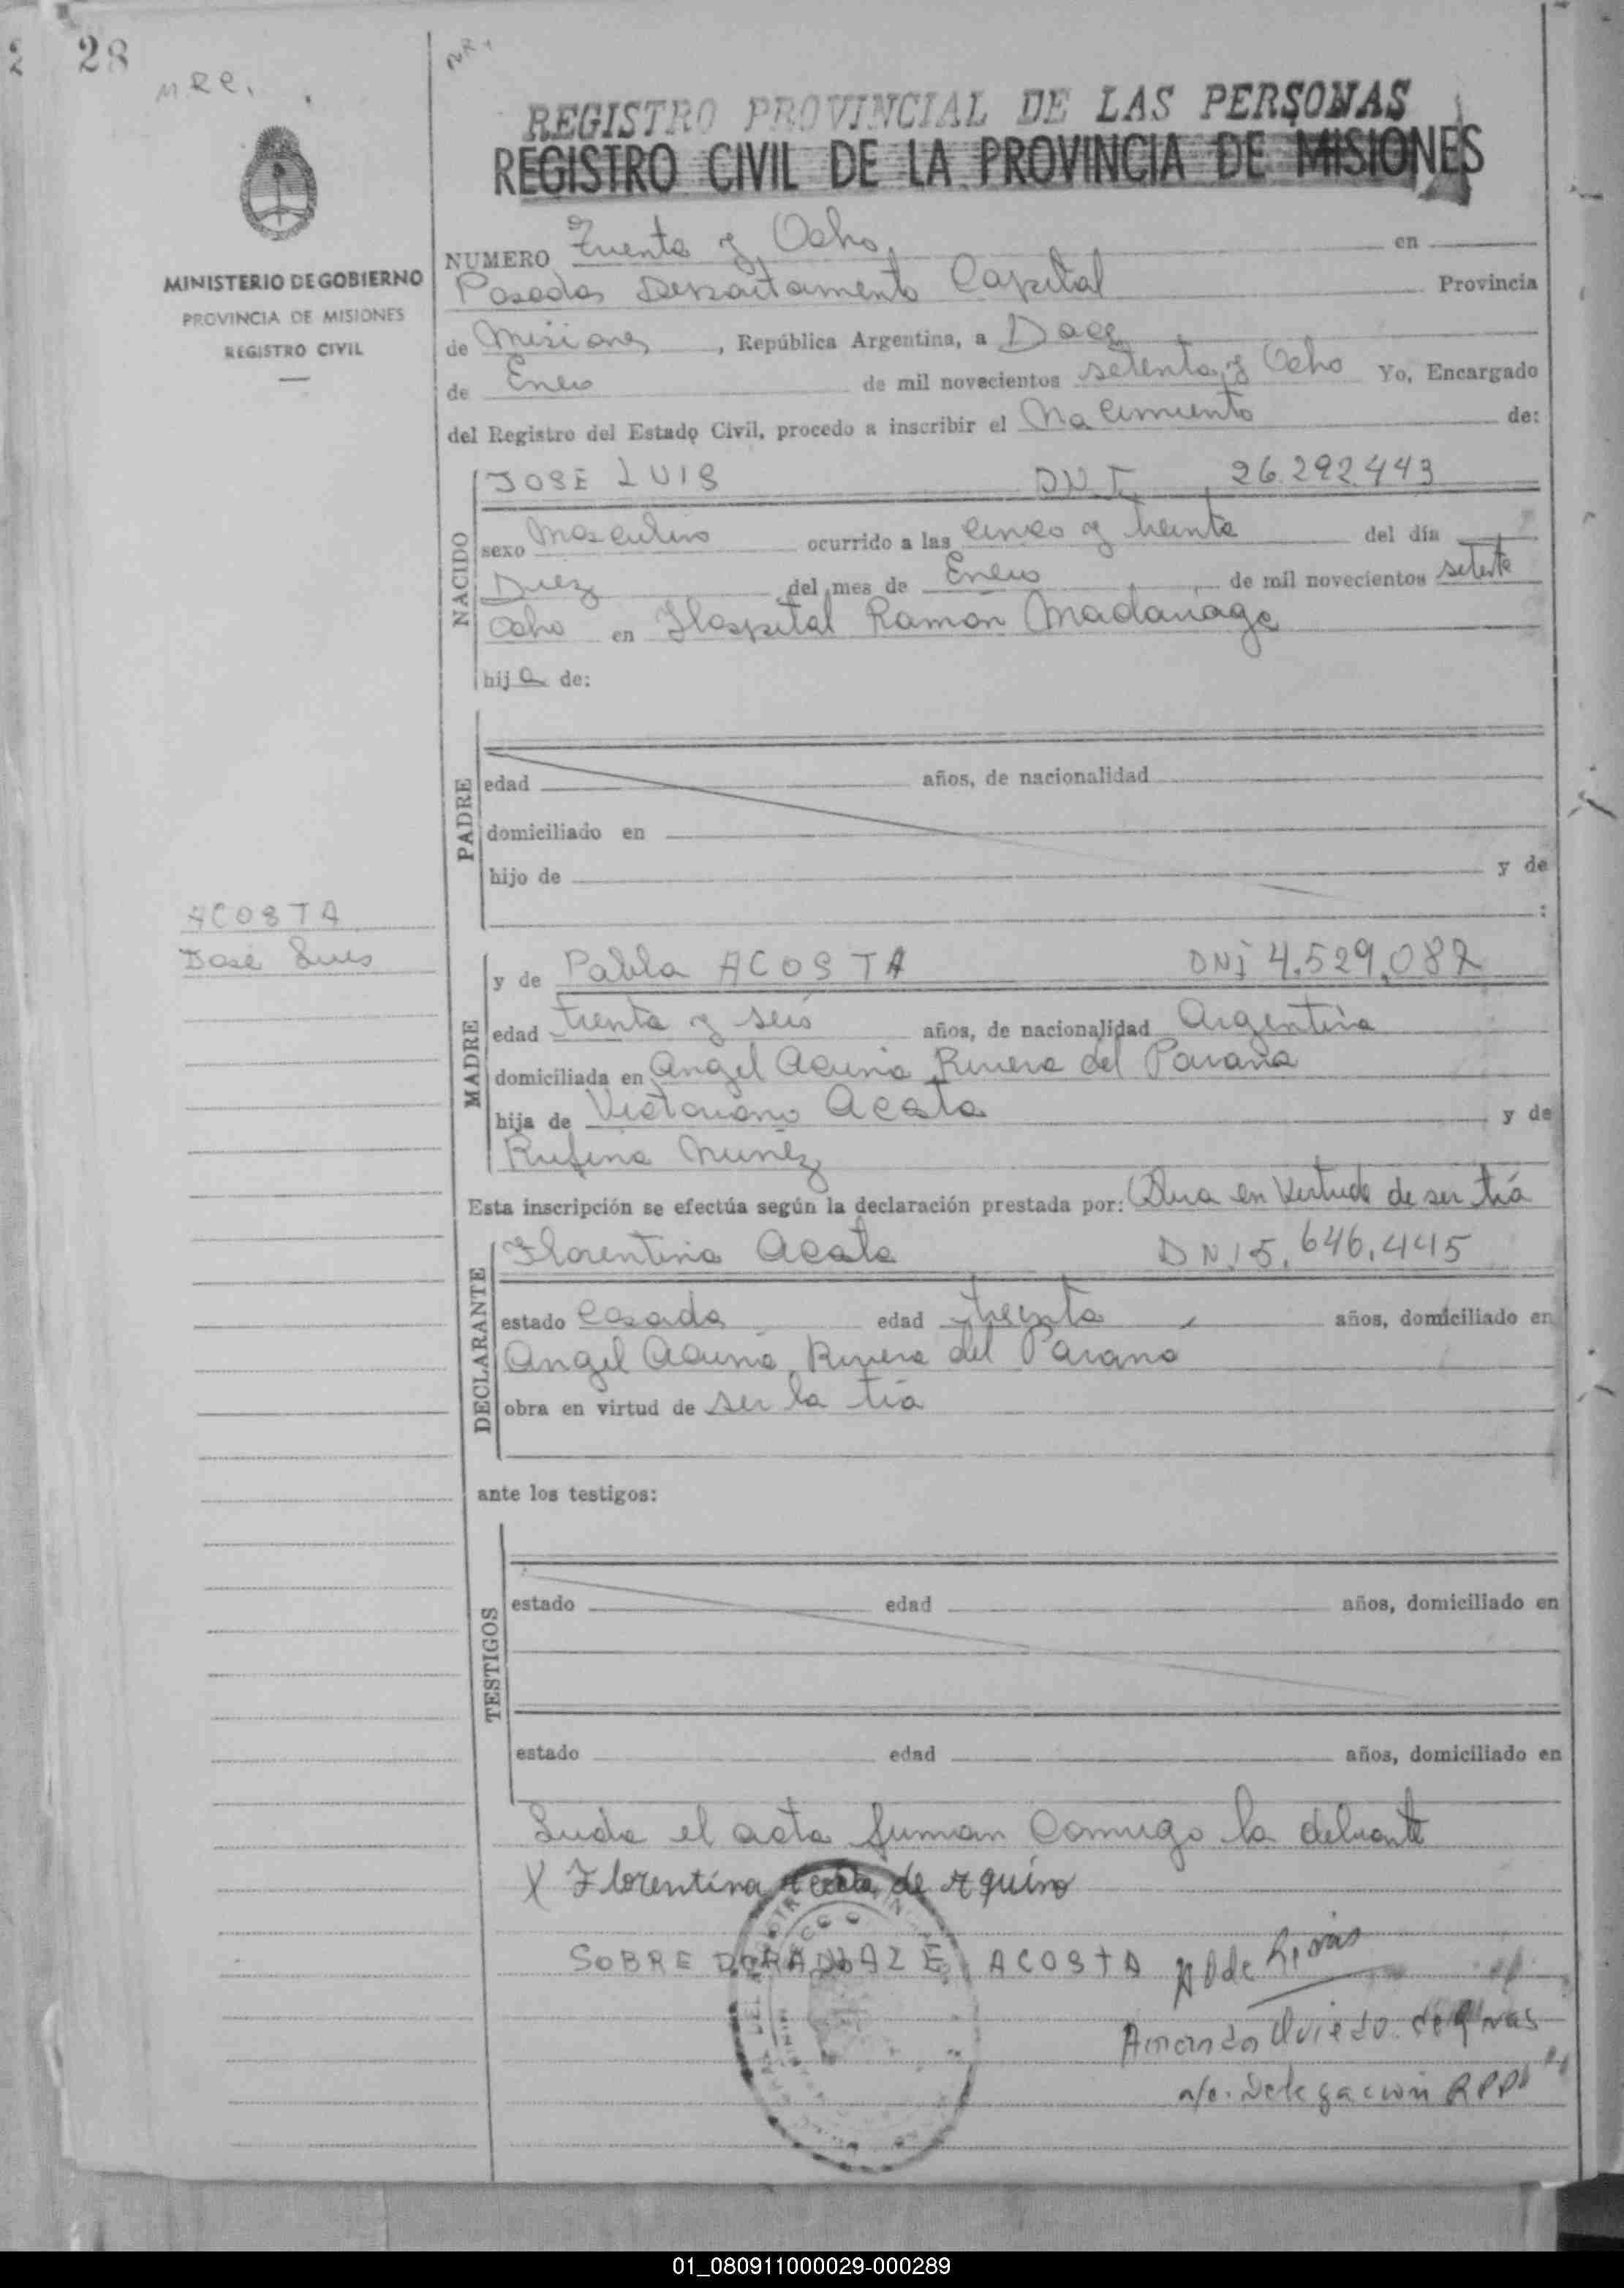 28
MRC.
MINISTERIO DE GOBIERNO
PROVINCIA DE MISIONES
REGISTRO CIVIL
REGISTRO PROVINCIAL DE LAS PERSONAS
REGISTRO CIVIL DE LA PROVINCIA DE MISIONES
NUMERO Treinta y Ocho en
Posadas Departamento Capital Provincia
de Misiones, República Argentina, a Doce
de Enero de mil novecientos setenta y Ocho Yo, Encargado
del Registro del Estado Civil, procedo a inscribir el Nacimiento de:
NACIDO
JOSE LUIS DNI 26.292.443
sexo Masculino ocurrido a las cinco y treinta del día
Diez del mes de Enero de mil novecientos setenta
Ocho en Hospital Ramón Madariaga
hijo de:
PADRE
edad años, de nacionalidad
domiciliado en
hijo de y de
:
ACOSTA
José Luis
MADRE
y de Pabla ACOSTA DNI 4.529.087
edad treinta y seis años, de nacionalidad Argentina
domiciliada en Angel Acuña Rivera del Paraná
hija de Victoriano Acosta y de
Rufina Nuñez
Esta inscripción se efectúa según la declaración prestada por: Obra en Virtud de ser tía
DECLARANTE
Florentina Acosta DNI 5.646.445
estado Casada edad treinta años, domiciliado en
Angel Acuña Rivera del Paraná
obra en virtud de ser la tía
ante los testigos:
TESTIGOS
estado edad años, domiciliado en
estado edad años, domiciliado en
Leida el acta firman Conmigo la declarante
X Florentina Acosta de Aquino
SOBRE ACOSTA
de Rivas
Oviedo de Rivas
a/c. Delegación RPP
01_080911000029-000289